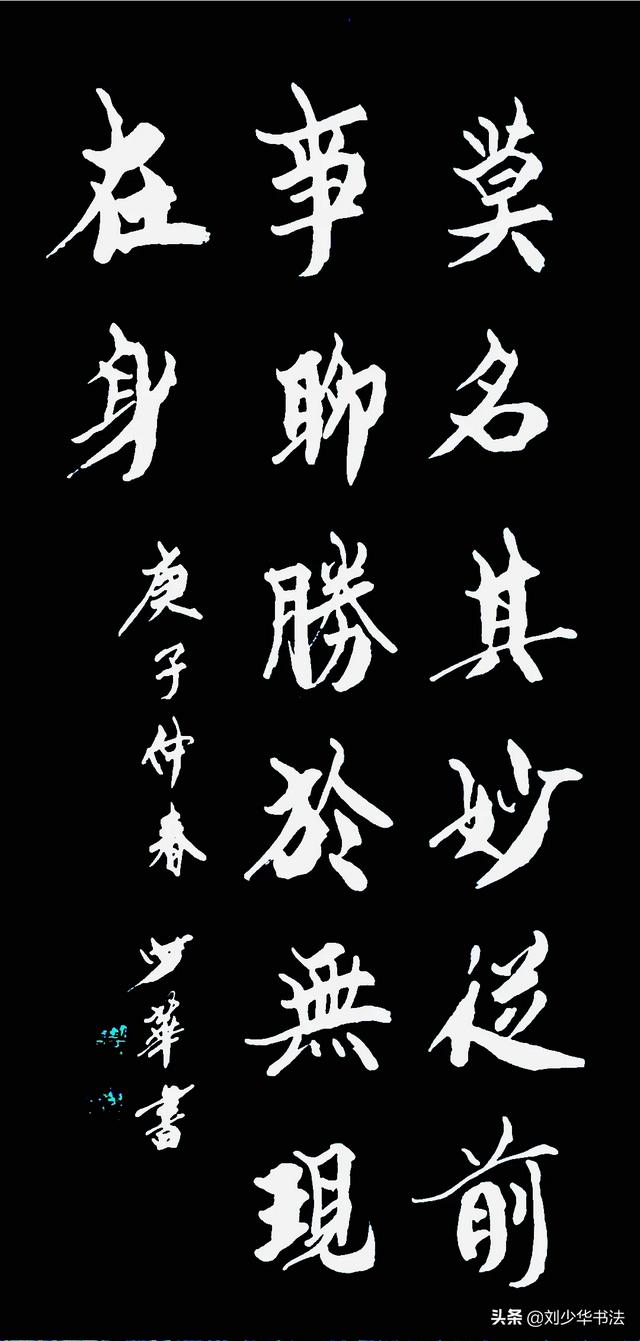 莫名其妙從前
事聊勝於無現
在身
庚子仲春 少華書
头条 @刘少华书法